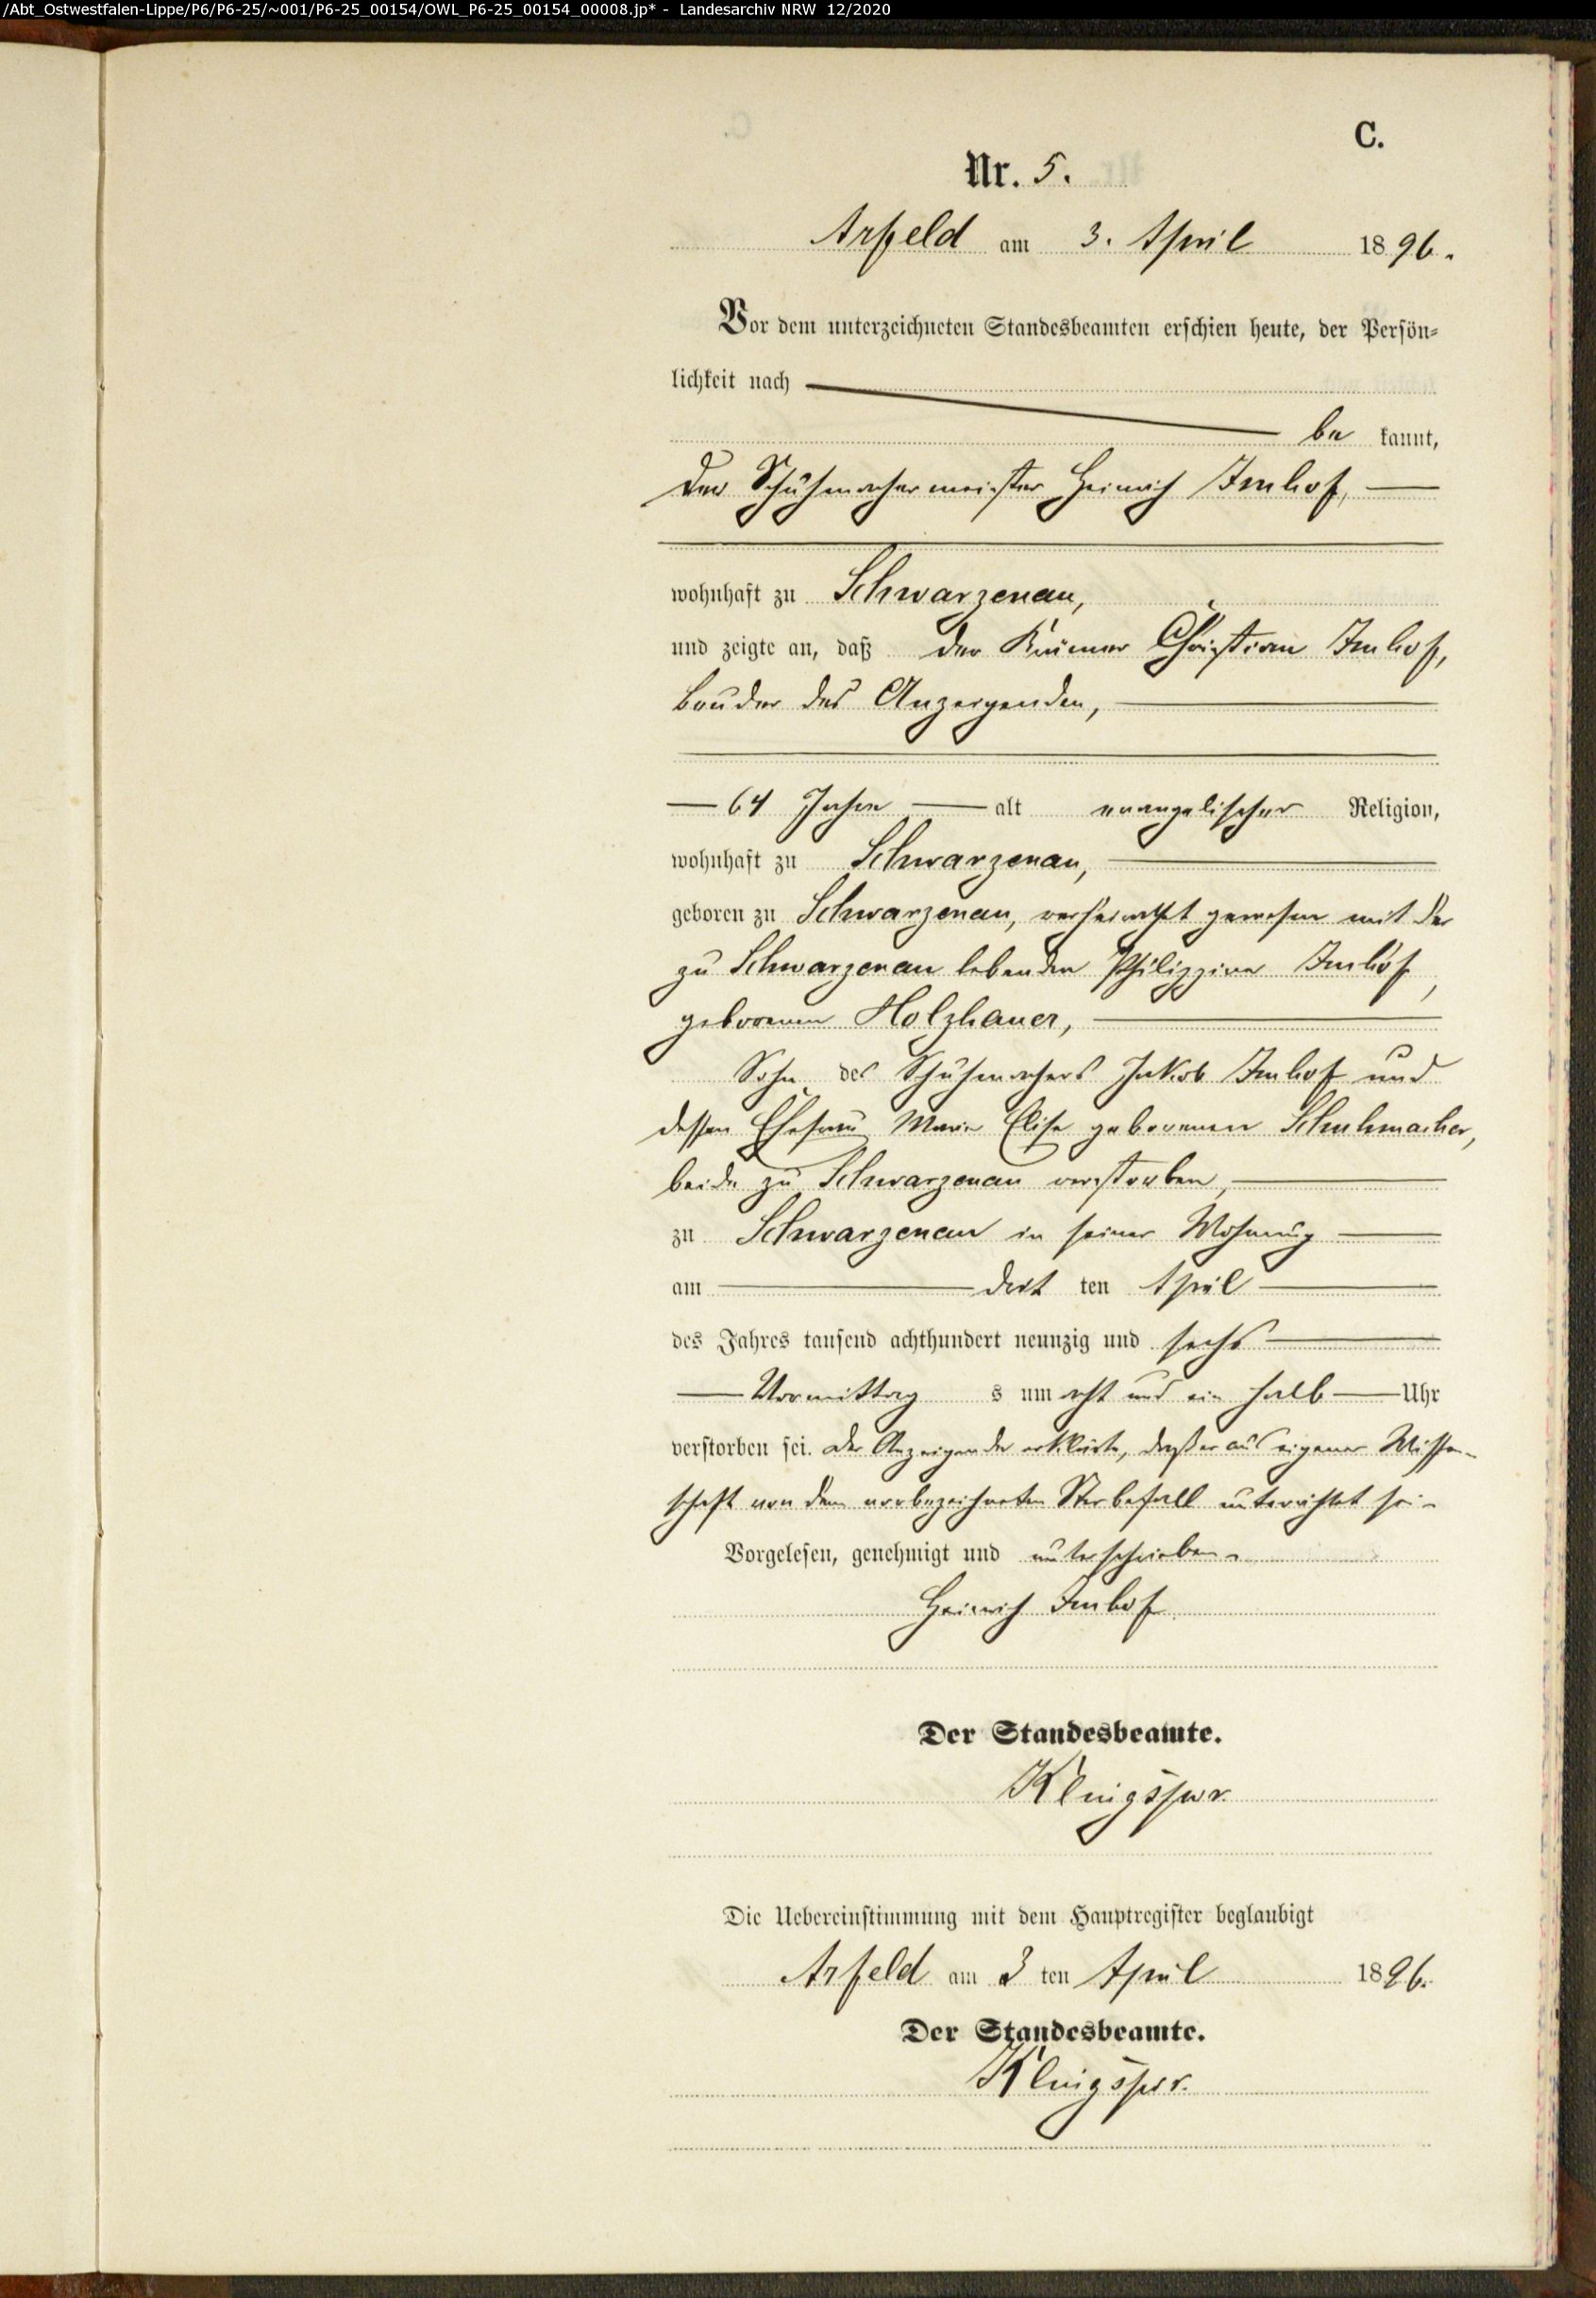 /Abt_Ostwestfalen-Lippe/P6/P6-25/~001/P6-25_00154/OWL_P6-25_00154_00008.jp* - Landesarchiv NRW 12/2020
C.
Nr. 5.
Arfeld am 3. April 1896.
Vor dem unterzeichneten Standesbeamten erschien heute, der Persön-
lichkeit nach
be kannt,
der Schuhmachermeister Heinrich Imhof,
wohnhaft zu Schwarzenau,
und zeigte an, daß der Krämer Christian Imhof,
Bruder des Anzeigenden,
64 Jahre alt evangelischer Religion,
wohnhaft zu Schwarzenau,
geboren zu Schwarzenau, verheirathet gewesen mit der
zu Schwarzenau lebenden Philippine Imhof,
geborenen Holzhauer,
Sohn des Schuhmachers Jakob Imhof und
dessen Ehefrau Marie Elise geborenen Schuhmacher,
beide zu Schwarzenau verstorben,
zu Schwarzenau in seiner Wohnung
am drit ten April
des Jahres tausend achthundert neunzig und sechs
Vormittag s um acht und ein halb Uhr
verstorben sei. Der Anzeigende erklärte, daß er aus eigener Wissen-
schaft von dem vorbezeichneten Sterbefall unterrichtet sei.
Vorgelesen, genehmigt und unterschrieben.
Heinrich Imhof
Der Standesbeamte.
Klingspor.
Die Uebereinstimmung mit dem Hauptregister beglaubigt
Arfeld am 3 ten April 1896.
Der Standesbeamte.
Klingspor.